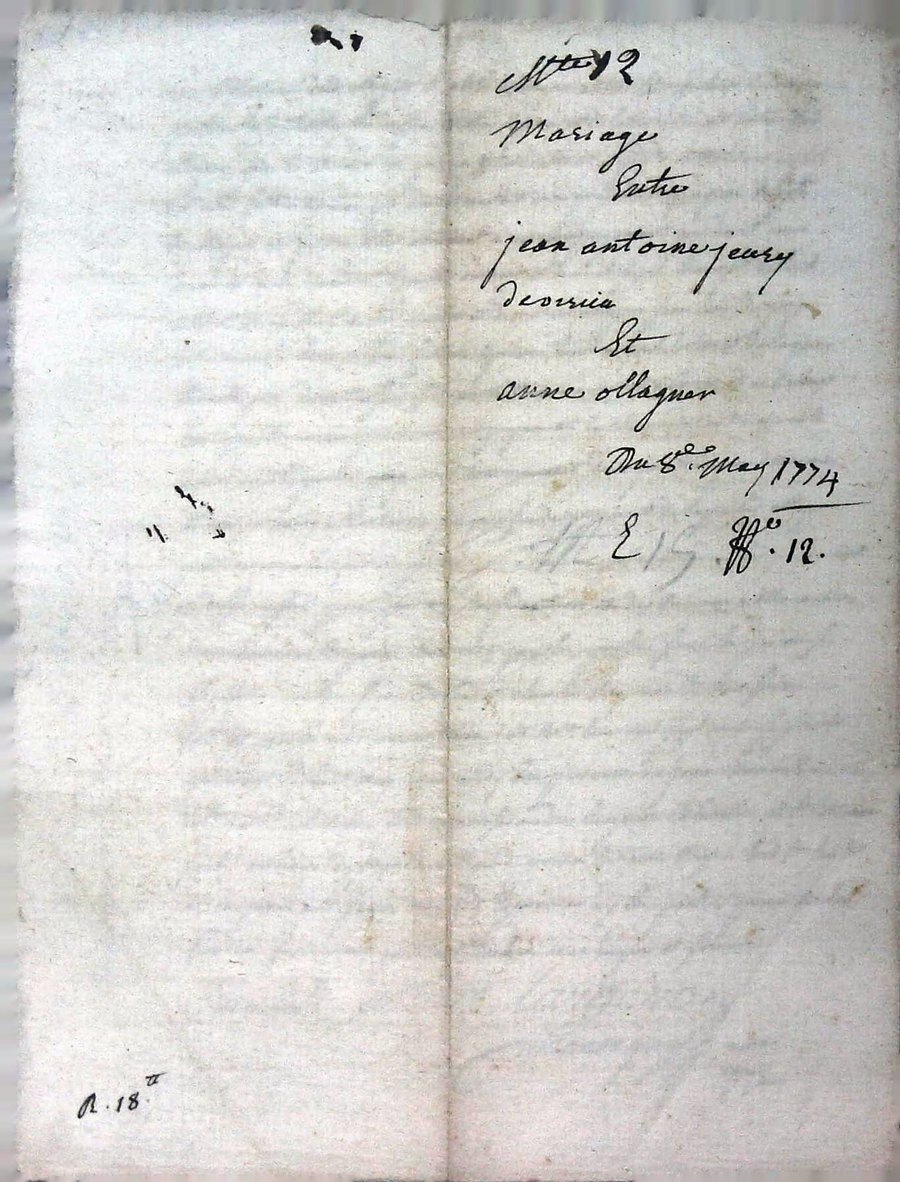 12
Mariage
Entre
jean antoine jeury
Et
anne ollagner
Du 8.e May 1774
E 12.
R. 18.tt